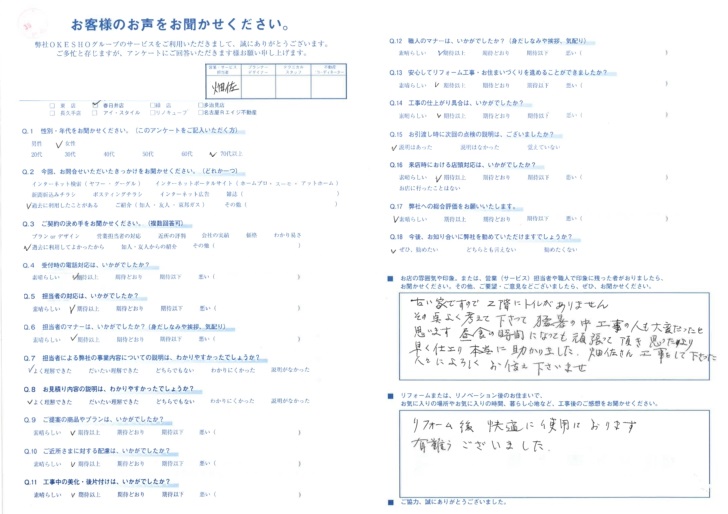 お客様のお声をお聞かせください。
弊社OKESHOグループのサービスをご利用いただきまして、誠にありがとうございます。
ご多忙と存じますが、アンケートにご回答いただきます様お願い申し上げます。
営業・サービス担当者
プランナー デザイナー
テクニカル スタッフ
不動産 コーディネーター
畑佐
□東店 ✓春日井店 □緑店 □多治見店
□長久手店 □アイ・スタイル □リノキューブ □名古屋ホエイジ不動産
Q.1 性別・年代をお聞かせください。(このアンケートをご記入いただく方)
男性 ✓女性
20代 30代 40代 50代 60代 ✓70代以上
Q.2 今回、お問合せいただいたきっかけをお聞かせください。(どれか一つ)
インターネット検索(ヤフー・グーグル) インターネットポータルサイト(ホームプロ・スーモ・アットホーム)
新聞折込みチラシ ポスティングチラシ インターネット広告 雑誌( )
✓過去に利用したことがある ご紹介(知人・友人・富邦ガス) その他( )
Q.3 ご契約の決め手をお聞かせください。(複数回答可)
プラン or デザイン 営業担当者の対応 近所の評判 会社の実績 価格 わかり易さ
✓過去に利用してよかったから 知人・友人からの紹介 その他( )
Q.4 受付時の電話対応は、いかがでしたか?
素晴らしい ✓期待以上 期待どおり 期待以下 悪い( )
Q.5 担当者の対応は、いかがでしたか?
素晴らしい ✓期待以上 期待どおり 期待以下 悪い( )
Q.6 担当者のマナーは、いかがでしたか?(身だしなみや挨拶、気配り)
素晴らしい ✓期待以上 期待どおり 期待以下 悪い( )
Q.7 担当者による弊社の事業内容についての説明は、わかりやすかったでしょうか?
✓よく理解できた だいたい理解できた どちらでもない わかりにくかった 説明がなかった
Q.8 お見積り内容の説明は、わかりやすかったでしょうか?
✓よく理解できた だいたい理解できた どちらでもない わかりにくかった 説明がなかった
Q.9 ご提案の商品やプランは、いかがでしたか?
素晴らしい ✓期待以上 期待どおり 期待以下 悪い( )
Q.10 ご近所さまに対する配慮は、いかがでしたか?
素晴らしい ✓期待以上 期待どおり 期待以下 悪い( )
Q.11 工事中の美化・後片付けは、いかがでしたか?
素晴らしい ✓期待以上 期待どおり 期待以下 悪い( )
Q.12 職人のマナーは、いかがでしたか?(身だしなみや挨拶、気配り)
素晴らしい ✓期待以上 期待どおり 期待以下 悪い( )
Q.13 安心してリフォーム工事・お住まいづくりを進めることができましたか?
素晴らしい ✓期待以上 期待どおり 期待以下 悪い( )
Q.14 工事の仕上がり具合は、いかがでしたか?
素晴らしい ✓期待以上 期待どおり 期待以下 悪い( )
Q.15 お引渡し時に次回の点検の説明は、ございましたか?
✓説明はあった 説明はなかった 覚えていない
Q.16 来店時における店頭対応は、いかがでしたか?
✓素晴らしい 期待以上 期待どおり 期待以下 悪い( )
お店に行ったことはない
Q.17 弊社への総合評価をお願いいたします。
✓素晴らしい 期待以上 期待どおり 期待以下 悪い( )
Q.18 今後、お知り合いに弊社を勧めていただけますでしょうか?
✓ぜひ、勧めたい どちらとも言えない 勧めたくない
■ お店の雰囲気や印象、または、営業(サービス)担当者や職人で印象に残った者がおりましたら、
お聞かせください。その他、ご要望・ご意見などございましたら、ぜひ、お聞かせください。
古い家ですので2階にトイレがありません
その点よく考えて下さって 猛暑の中 工事の人も大変だったと
思います 昼食の時間になっても頑張って頂き 思ったより
早く仕上り 本当に助かりました。畑佐さん 工事をして下さった
人々によろしく お伝え下さいませ
■ リフォームまたは、リノベーション後のお住まいで、
お気に入りの場所やお気に入りの時間、暮らし心地など、工事後のご感想をお聞かせください。
リフォーム後 快適に使用しております
有難うございました。
■ ご協力、誠にありがとうございました。